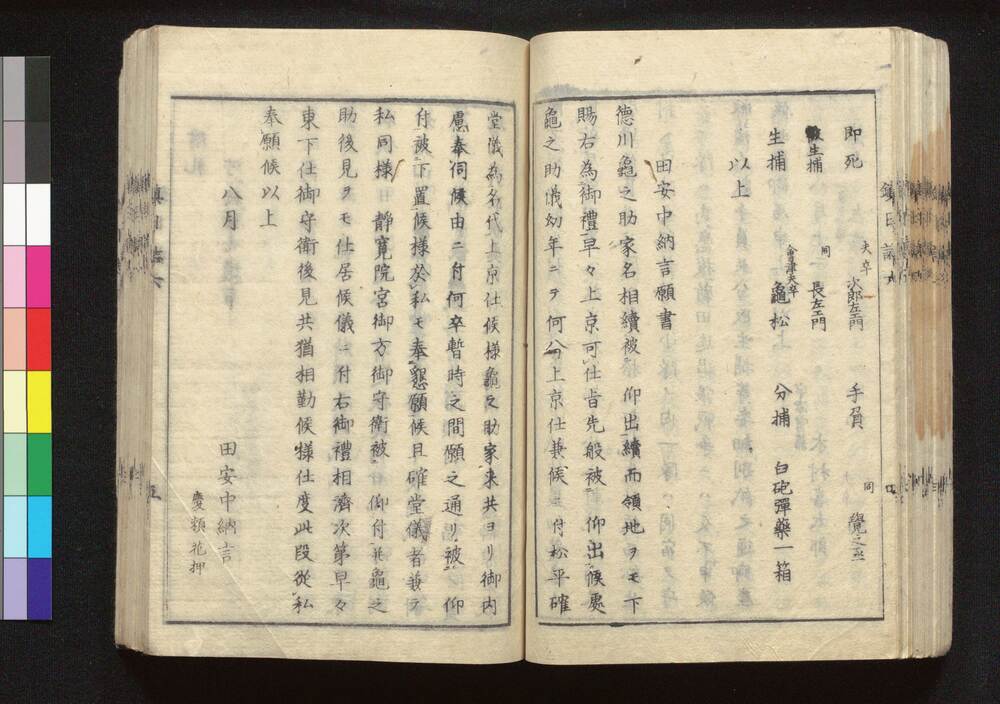 即死 夫卒 次郎左エ門 手負 同 覺之丞
生捕 同 長左エ門
生捕 會津夫卒 龜松 分捕 臼砲彈藥一箱
以上
田安中納言願書
德川龜之助家名相續被 仰出續而領地ヲモ下
賜右為御禮早々上京可仕旨先般被 仰出候處
龜之助儀幼年ニヲ何分上京仕兼候ニ付松平確
堂儀為名代上京仕候様龜之助家来共ヨリ御内
慮奉伺候由ニ付何卒暫時之間願之通リ被 仰
付被下置候様於私モ奉懇願候且確堂儀者兼テ
私同様 静寛院宮御方御守衛被 仰付並龜之
助後見ヲモ仕居候儀ニ付右御禮相濟次第早々
東下仕御守衛後見共猶相勤候様仕度此段從私
奉願候以上
八月 田安中納言
慶頼花押